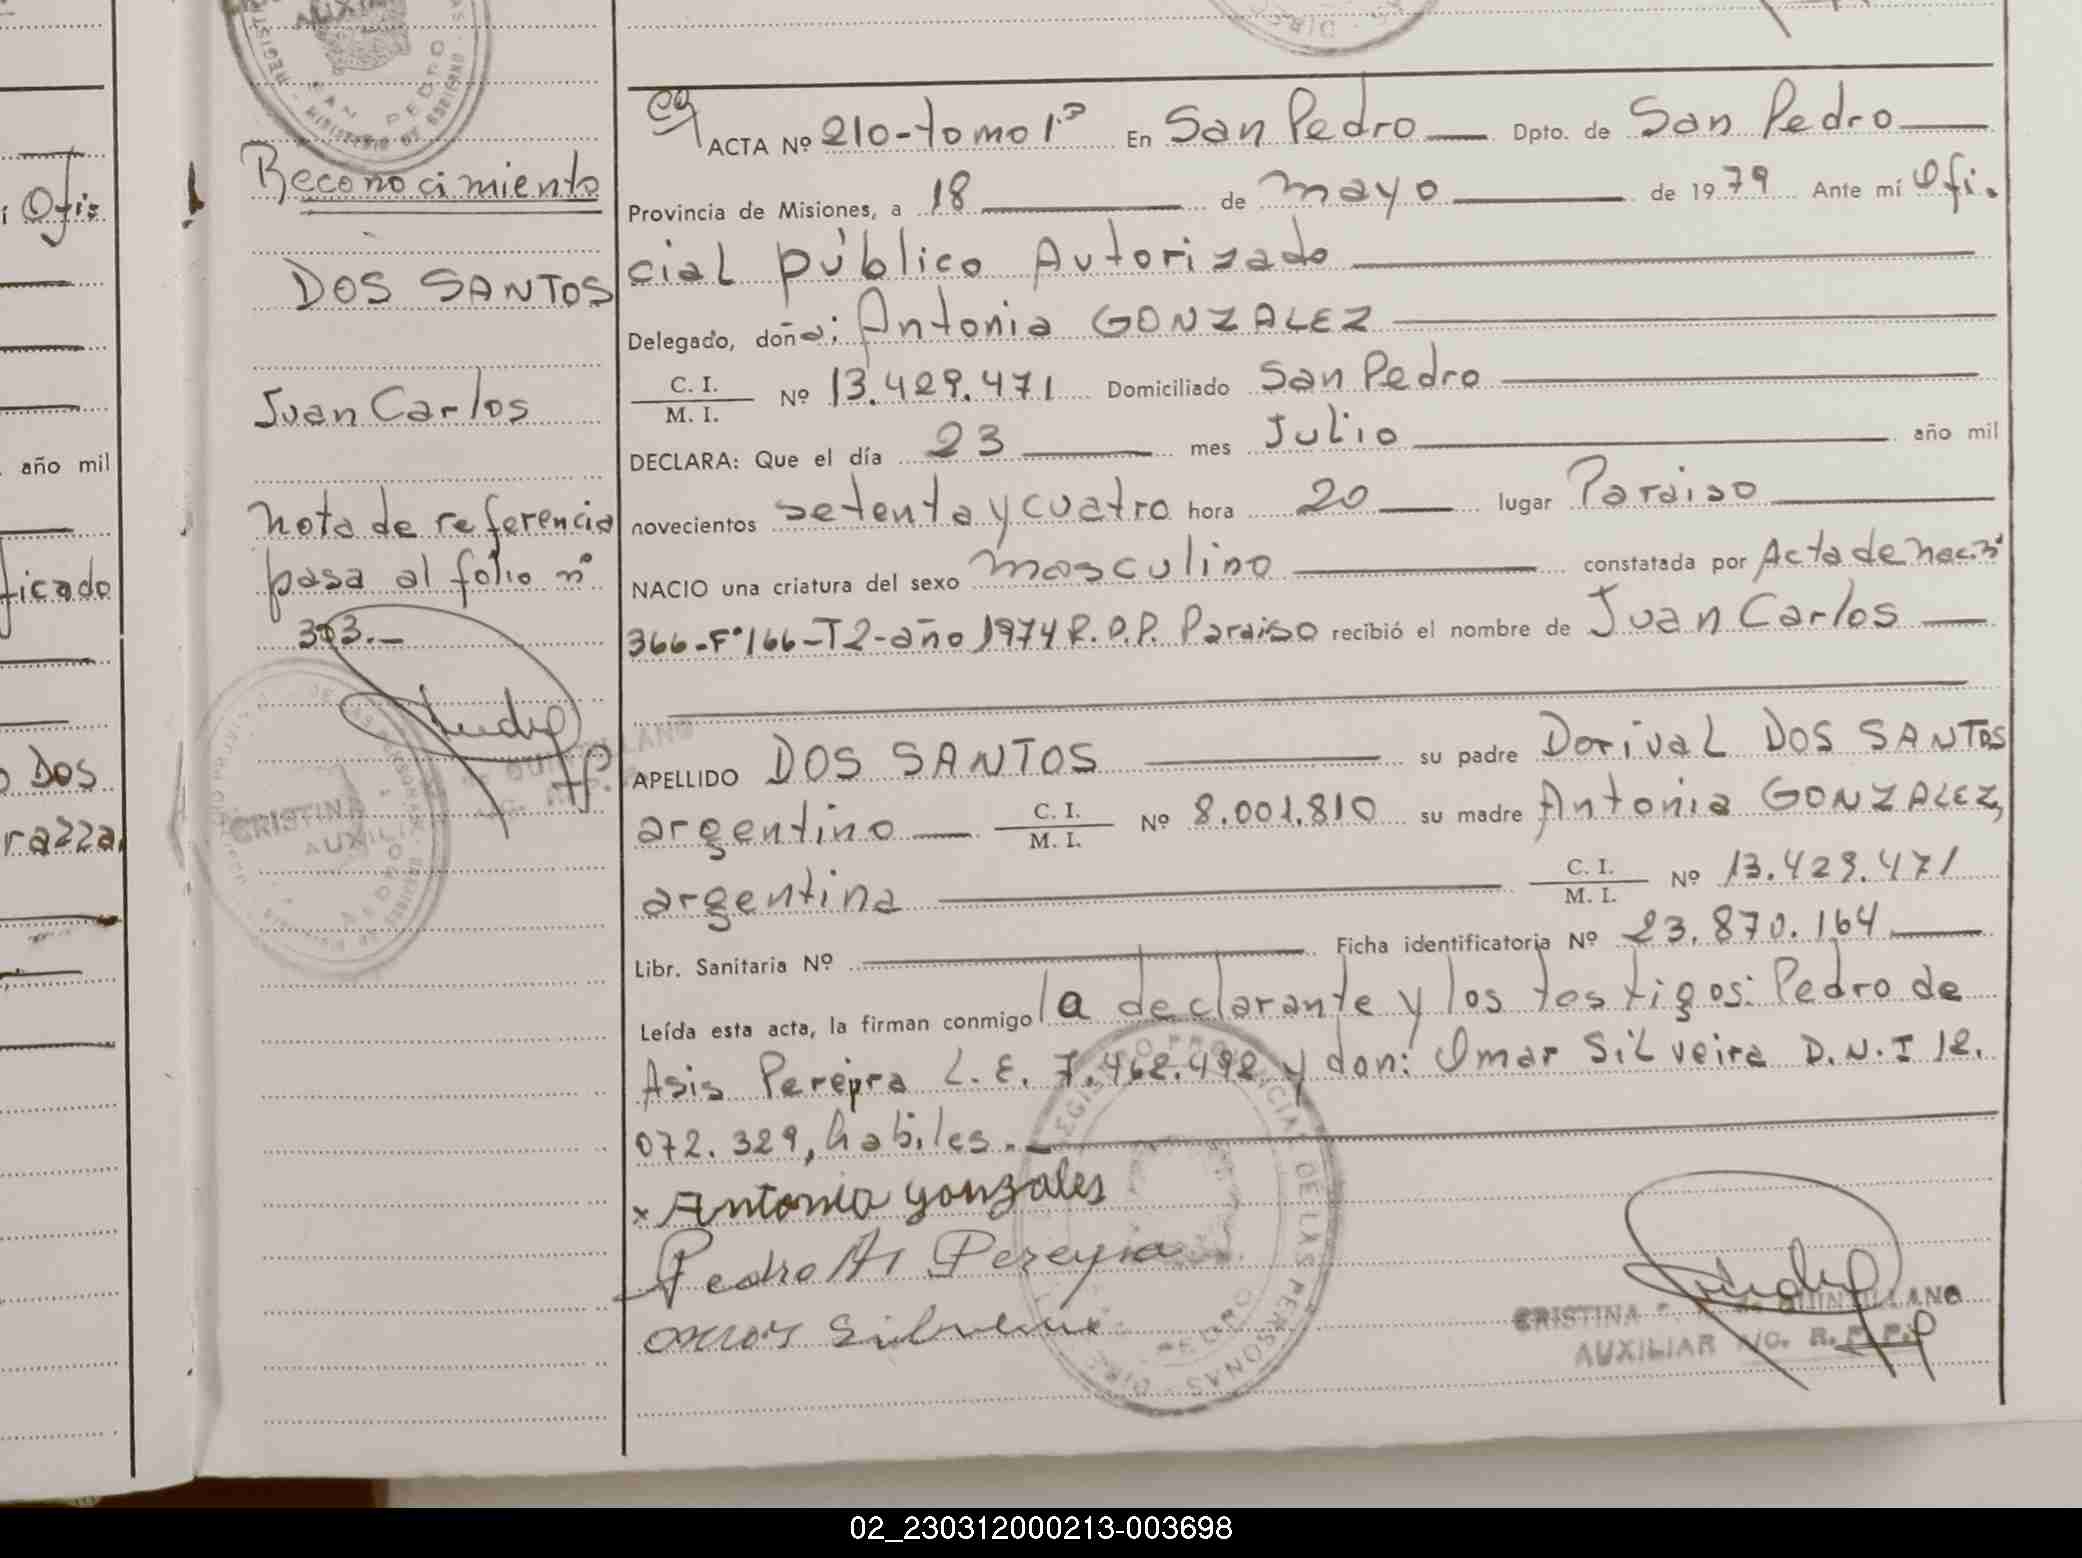 Ofi:
año mil
ficado
DOS
razza,
AUXI
SAN PEDRO
MINISTERIO DE GOBIERNO
Reconocimiento
DOS SANTOS
Juan Carlos
Nota de referencia
pasa al folio nº
303.-
CRISTINA
AUXILI
ACTA Nº 210-tomo 1º En San Pedro Dpto. de San Pedro
Provincia de Misiones, a 18 de mayo de 1979 Ante mí Ofi.
cial público Autorizado
Delegado, doña; Antonia GONZALEZ
C. I.
M. I. Nº 13.429.471 Domiciliado San Pedro
DECLARA: Que el día 23 mes Julio año mil
novecientos setenta y cuatro hora 20 lugar Paraiso
NACIO una criatura del sexo masculino constatada por Acta de Nac. nº
366-Fº166-T2-año 1974 R.P.P. Paraiso recibió el nombre de Juan Carlos
APELLIDO DOS SANTOS su padre Dorival DOS SANTOS
argentino C. I.
M. I. Nº 8.001.810 su madre Antonia GONZALEZ,
argentina C. I.
M. I. Nº 13.429.471
Libr. Sanitaria Nº Ficha identificatoria Nº 23.870.164
Leída esta acta, la firman conmigo la declarante y los testigos: Pedro de
Asis Pereyra L.E. 7.462.492 y don: Omar Silveira D.N.I 12.
072.329, habiles.-
x Antonia gonzales
Pedro A Pereyra
omar Silveira
REGISTRO PROVINCIAL DE LAS PERSONAS
CRISTINA de QUINTILLANO
AUXILIAR A/C. R. P. P.
02_230312000213-003698